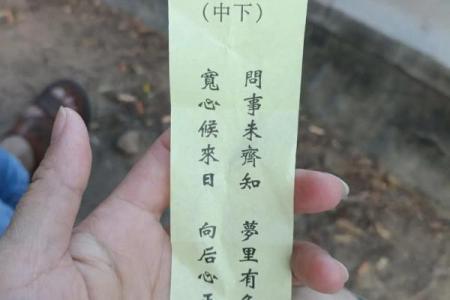 （中下）
問事未齊知 夢里有
寬心候來日 向后心